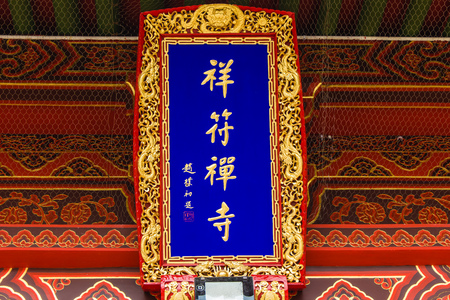 祥符禪寺
趙樸初題